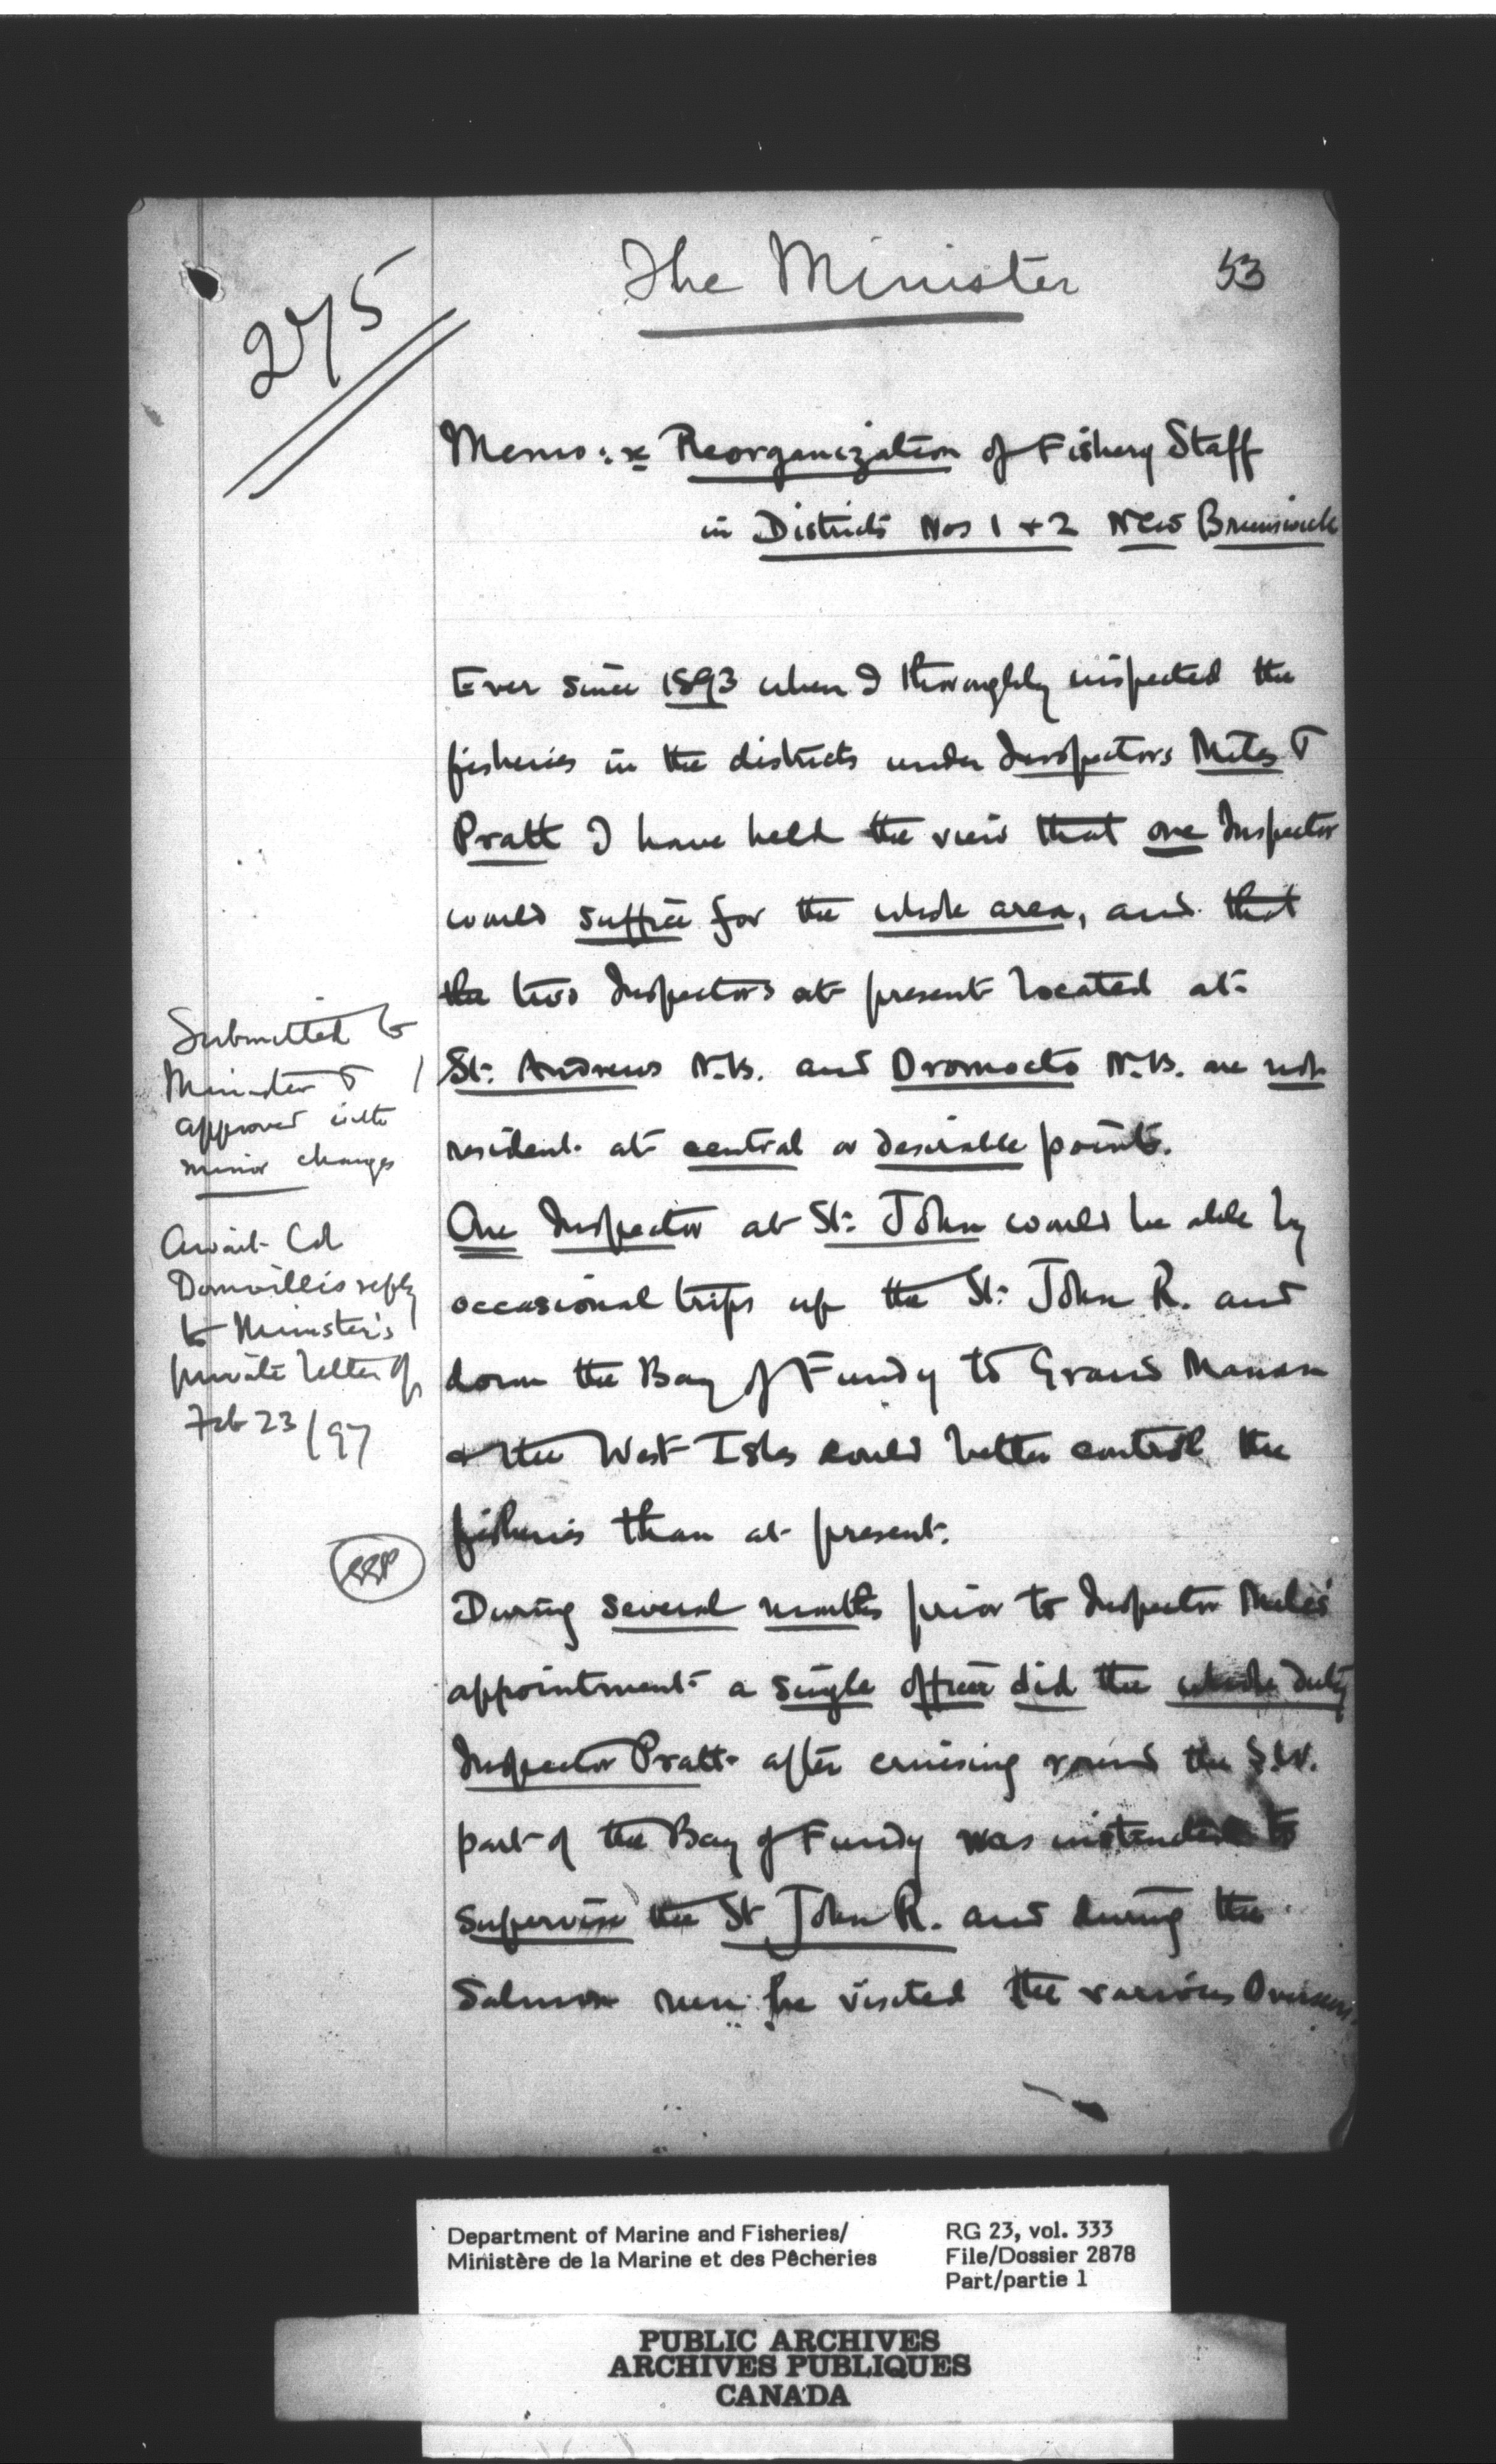 The Minister
53
275
Memo: re Reorganization of Fishery Staff
in Districts Nos 1 + 2 New Brunswick
Ever since 1893 when I thoroughly inspected the
fisheries in the districts under Inspectors Miles &
Pratt I have held the view that one Inspector
would suffice for the whole area, and that
the two Inspectors at present located at
St. Andrews N.B. and Oromocto N.B. are not
resident at central or desirable points.
One Inspector at St. John would be able by
occasional trips up the St. John R. and
down the Bay of Fundy to Grand Manan
& the West Isles could better control the
fisheries than at present.
During several months prior to Inspector Miles'
appointment a single officer did the whole duty
Inspector Pratt after cruising round the S.W.
part of the Bay of Fundy was to
supervise the St John R. and during the
Salmon run he visited the various Overseers
Submitted to
Minister &
approved with
minor changes
Await Col
Domvilles reply
to Minister's
private letter of
Feb 23/97
Department of Marine and Fisheries/
Ministère de la Marine et des Pêcheries
RG 23, vol. 333
File/Dossier 2878
Part/partie 1
PUBLIC ARCHIVES
ARCHIVES PUBLIQUES
CANADA